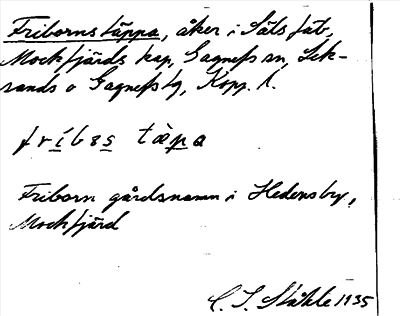 Fribornstäppa, åker i Säls fäb,
Mockfjärds kap, Gagnefs sn, Lek-
sands o Gagnefs tg, Kopp. l.
fríbɛs tàpa
Friborn gårdsnamn i Hedensby,
Mockfjärd
C. I. Ståhle 1935